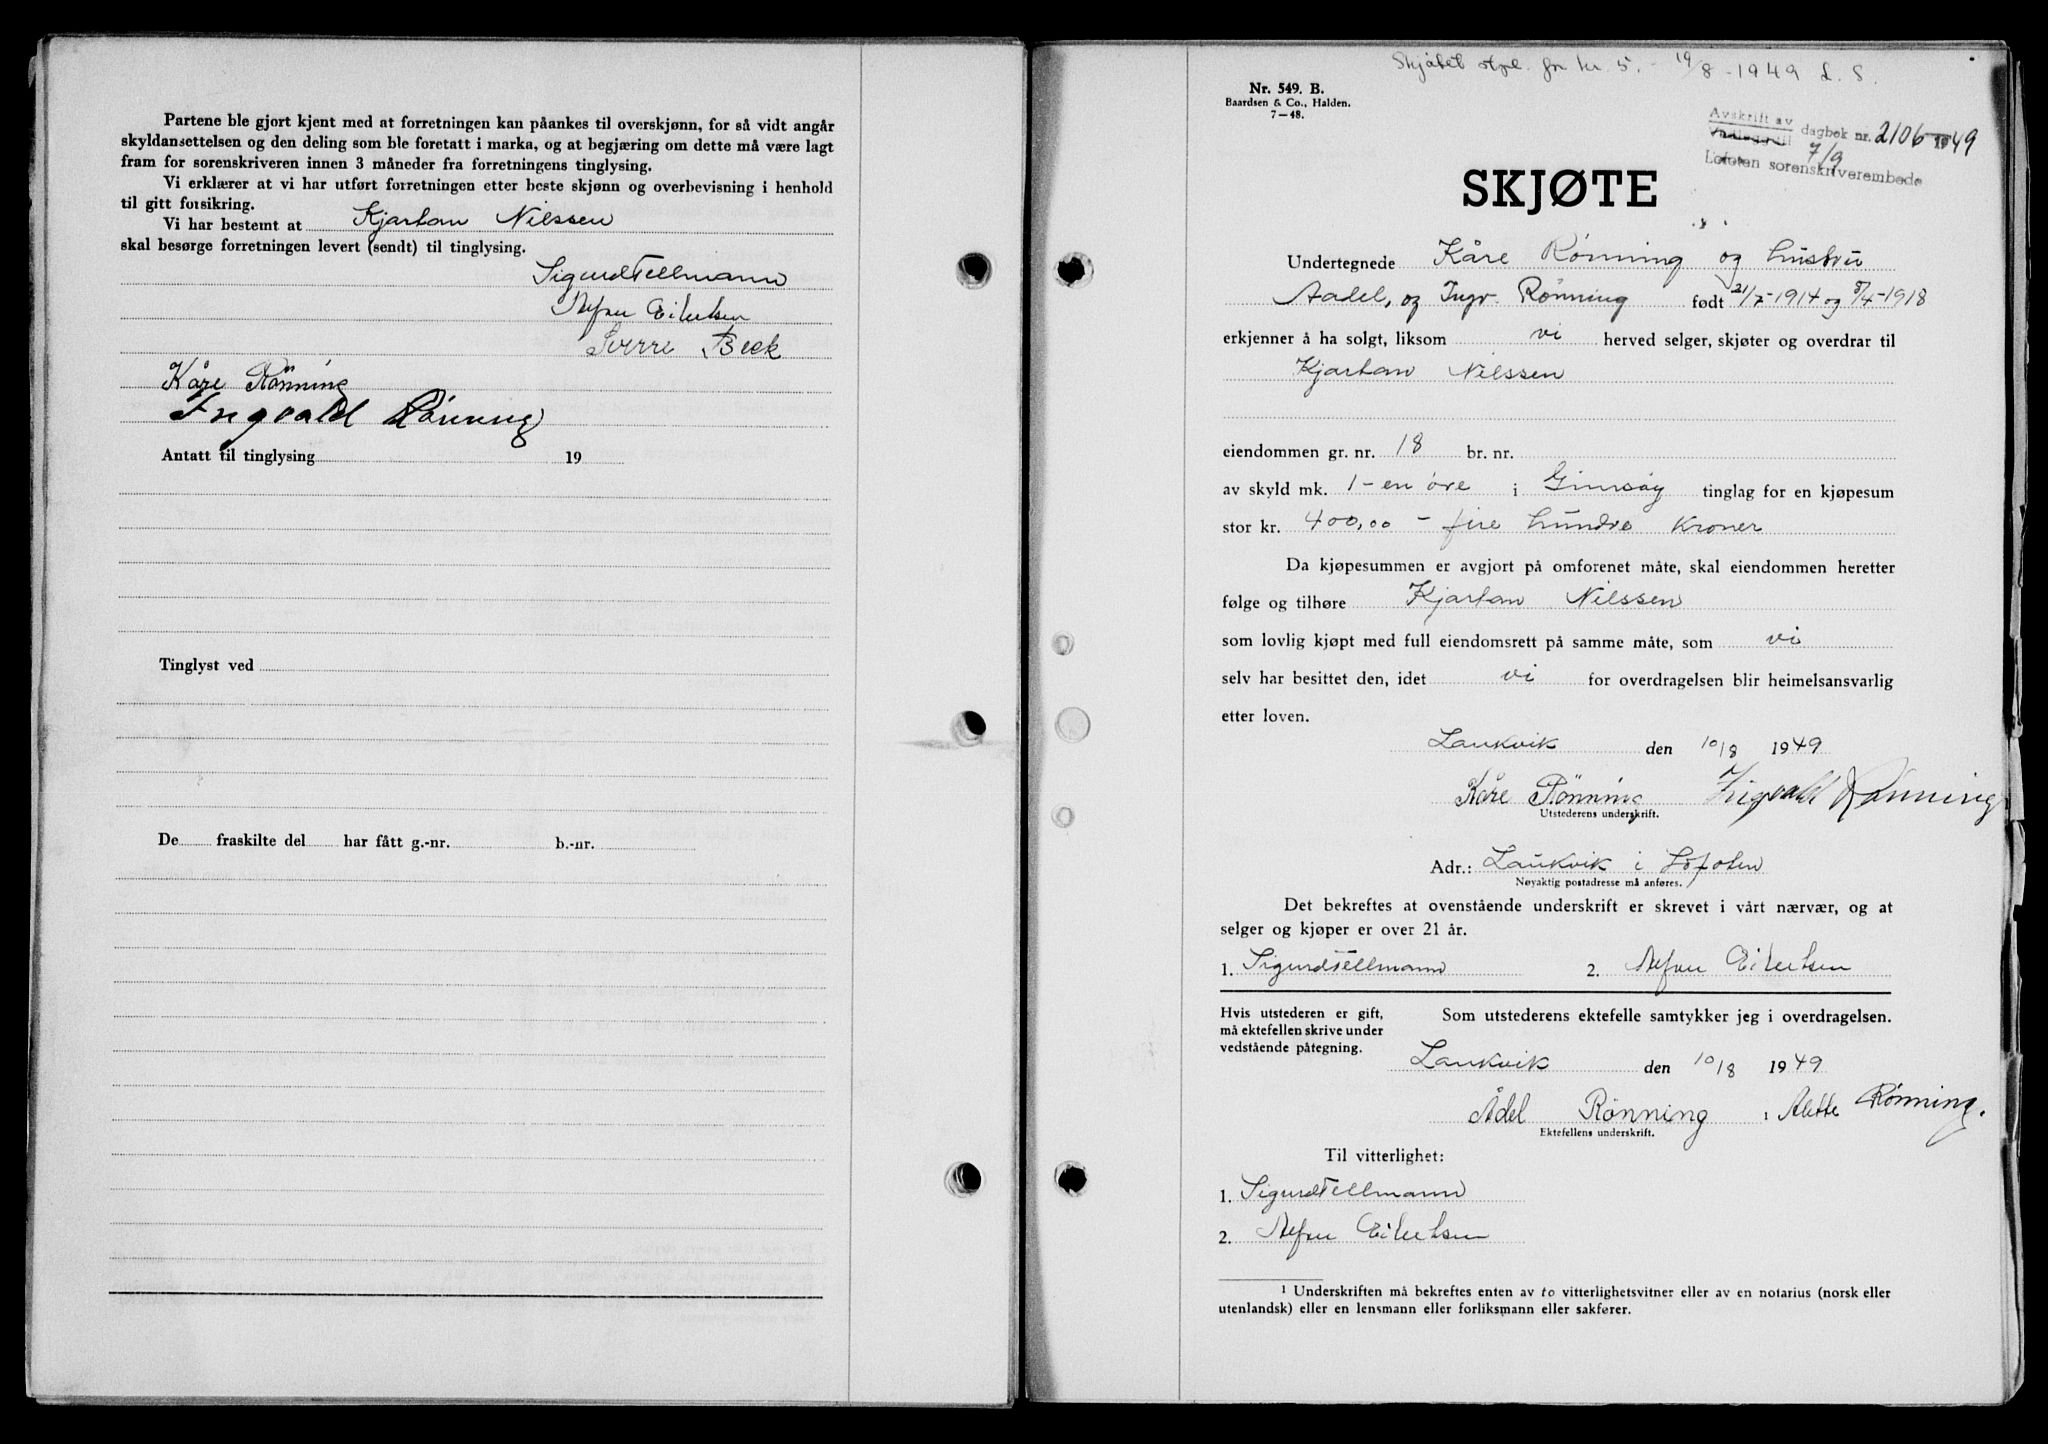 Partene ble gjort kjent med at forretningen kan påankes til overskjønn, for så vidt angår
skyldansettelsen og den deling som ble foretatt i marka, og at begjæring om dette må være lagt
fram for sorenskriveren innen 3 måneder fra forretningens tinglysing.
Vi erklærer at vi har utført forretningen etter beste skjønn og overbevisning i henhold
til gitt forsikring.
Vi har bestemt at Kjartan Nilssen
skal besørge forretningen levert (sendt) til tinglysing.
Sigurd Tellmann
Eilertsen
Sverre Beck
Kåre Rønning
Ingvald Rønning
Antatt til tinglysing 19
Tinglyst ved
De fraskilte del har fått g.-nr. b.-nr.
Skjøtet stpl. for kr 5. - 19/8 - 1949 L. S.
Nr. 549. B.
Baardsen & Co., Halden.
7-48.
Avskrift av
dagbok nr. 2106 - 1949
7/9
Lofoten sorenskriverembede
SKJØTE
Undertegnede Kåre Rønning og hustru
Aadel, og Ingv. Rønning født 21/7-1914 og 8/4-1918
erkjenner å ha solgt, liksom vi herved selger, skjøter og overdrar til
Kjartan Nilssen
eiendommen gr. nr. 18 br. nr.
av skyld mk. 1 - en øre i Gimsøy tinglag for en kjøpesum
stor kr. 400,00 - fire hundre kroner
Da kjøpesummen er avgjort på omforenet måte, skal eiendommen heretter
følge og tilhøre Kjartan Nilssen
som lovlig kjøpt med full eiendomsrett på samme måte, som vi
selv har besittet den, idet vi for overdragelsen blir heimelsansvarlig
etter loven.
Laukvik den 10/8 1949
Kåre Rønning Ingvald Rønning
Utstederens underskrift.
Adr.: Laukvik i Lofoten
Nøyaktig postadresse må anføres.
Det bekreftes at ovenstående underskrift er skrevet i vårt nærvær, og at
selger og kjøper er over 21 år.
1. Sigurd Tellmann 2. Eilertsen
Hvis utstederen er gift,
må ektefellen skrive under
vedstående påtegning.
Som utstederens ektefelle samtykker jeg i overdragelsen.
Laukvik den 10/8 1949
Ådel Rønning ¹ Alette Rønning.
Ektefellens underskrift.
Til vitterlighet:
1. Sigurd Tellmann
2. Eilertsen
¹ Underskriften må bekreftes enten av to vitterlighetsvitner eller av en notarius (norsk eller
utenlandsk) eller en lensmann eller forliksmann eller sakfører.